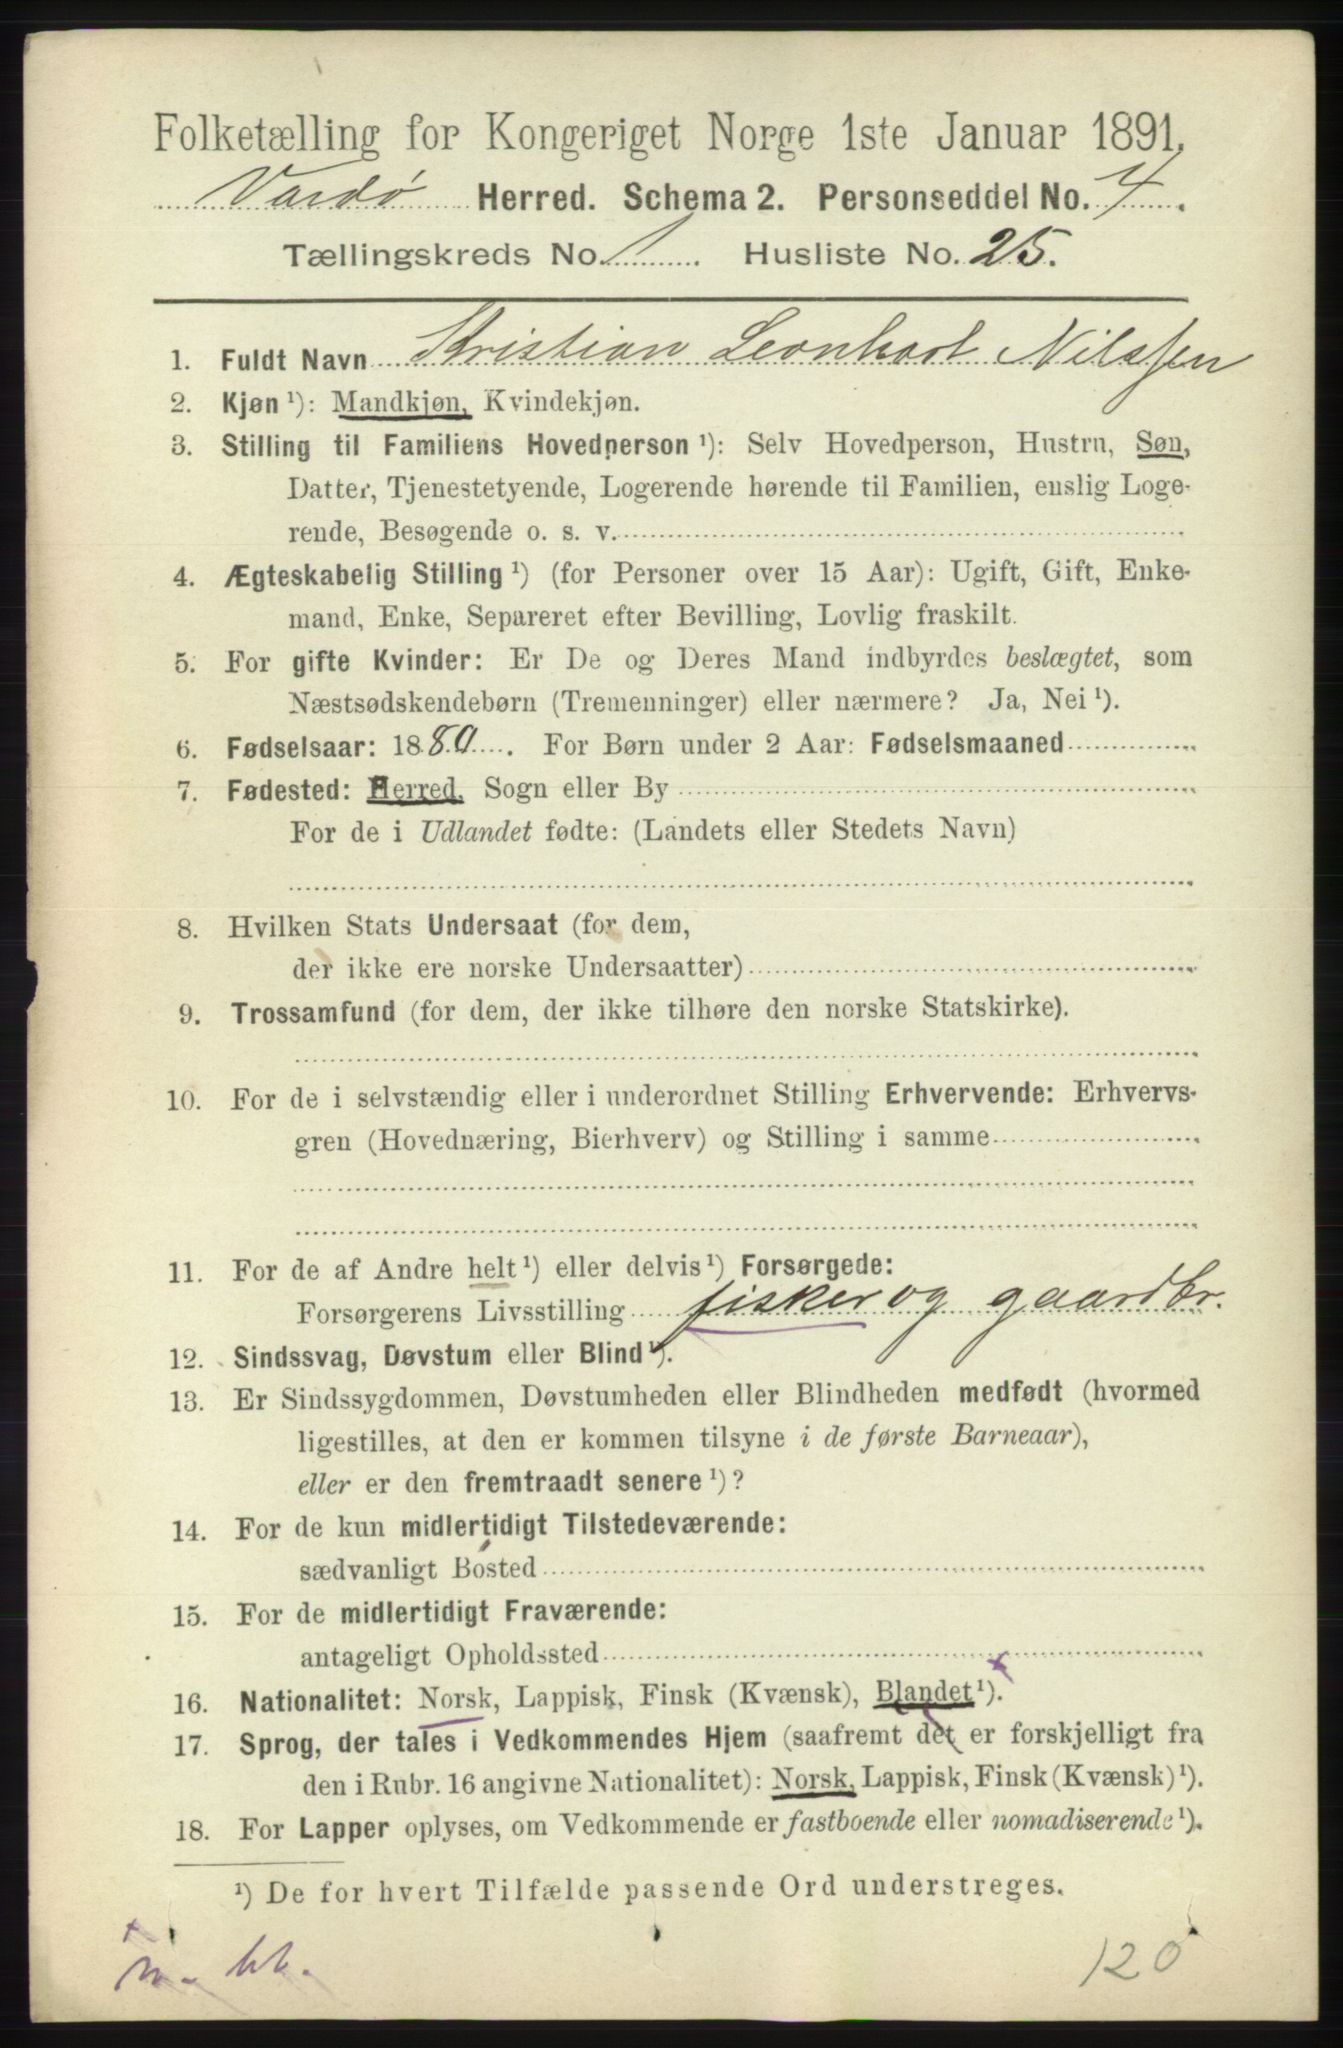 Folketælling for Kongeriget Norge 1ste Januar 1891.
Vardø Herred. Schema 2. Personseddel No. 4.
Tællingskreds No. 1. Husliste No. 25.
1. Fuldt Navn Kristian Leonhart Nilssen
2. Kjøn ¹): Mandkjøn, Kvindekjøn.
3. Stilling til Familiens Hovedperson ¹): Selv Hovedperson, Hustru, Søn,
Datter, Tjenestetyende, Logerende hørende til Familien, enslig Loge-
rende, Besøgende o. s. v.
4. Ægteskabelig Stilling ¹) (for Personer over 15 Aar): Ugift, Gift, Enke-
mand, Enke, Separeret efter Bevilling, Lovlig fraskilt.
5. For gifte Kvinder: Er De og Deres Mand indbyrdes beslægtet, som
Næstsødskendebørn (Tremenninger) eller nærmere? Ja, Nei ¹).
6. Fødselsaar: 1880. For Børn under 2 Aar: Fødselsmaaned
7. Fødested: Herred, Sogn eller By
For de i Udlandet fødte: (Landets eller Stedets Navn)
8. Hvilken Stats Undersaat (for dem,
der ikke ere norske Undersaatter)
9. Trossamfund (for dem, der ikke tilhøre den norske Statskirke).
10. For de i selvstændig eller i underordnet Stilling Erhvervende: Erhvervs-
gren (Hovednæring, Bierhverv) og Stilling i samme
11. For de af Andre helt ¹) eller delvis ¹) Forsørgede:
Forsørgerens Livsstilling fisker og gaardbr.
12. Sindssvag, Døvstum eller Blind ¹).
13. Er Sindssygdommen, Døvstumheden eller Blindheden medfødt (hvormed
ligestilles, at den er kommen tilsyne i de første Barneaar),
eller er den fremtraadt senere ¹)?
14. For de kun midlertidigt Tilstedeværende:
sædvanligt Bosted
15. For de midlertidigt Fraværende:
antageligt Opholdssted
16. Nationalitet: Norsk, Lappisk, Finsk (Kvænsk), Blandet ¹).
17. Sprog, der tales i Vedkommendes Hjem (saafremt det er forskjelligt fra
den i Rubr. 16 angivne Nationalitet): Norsk, Lappisk, Finsk (Kvænsk) ¹).
18. For Lapper oplyses, om Vedkommende er fastboende eller nomadiserende ¹).
¹) De for hvert Tilfælde passende Ord understreges.
120